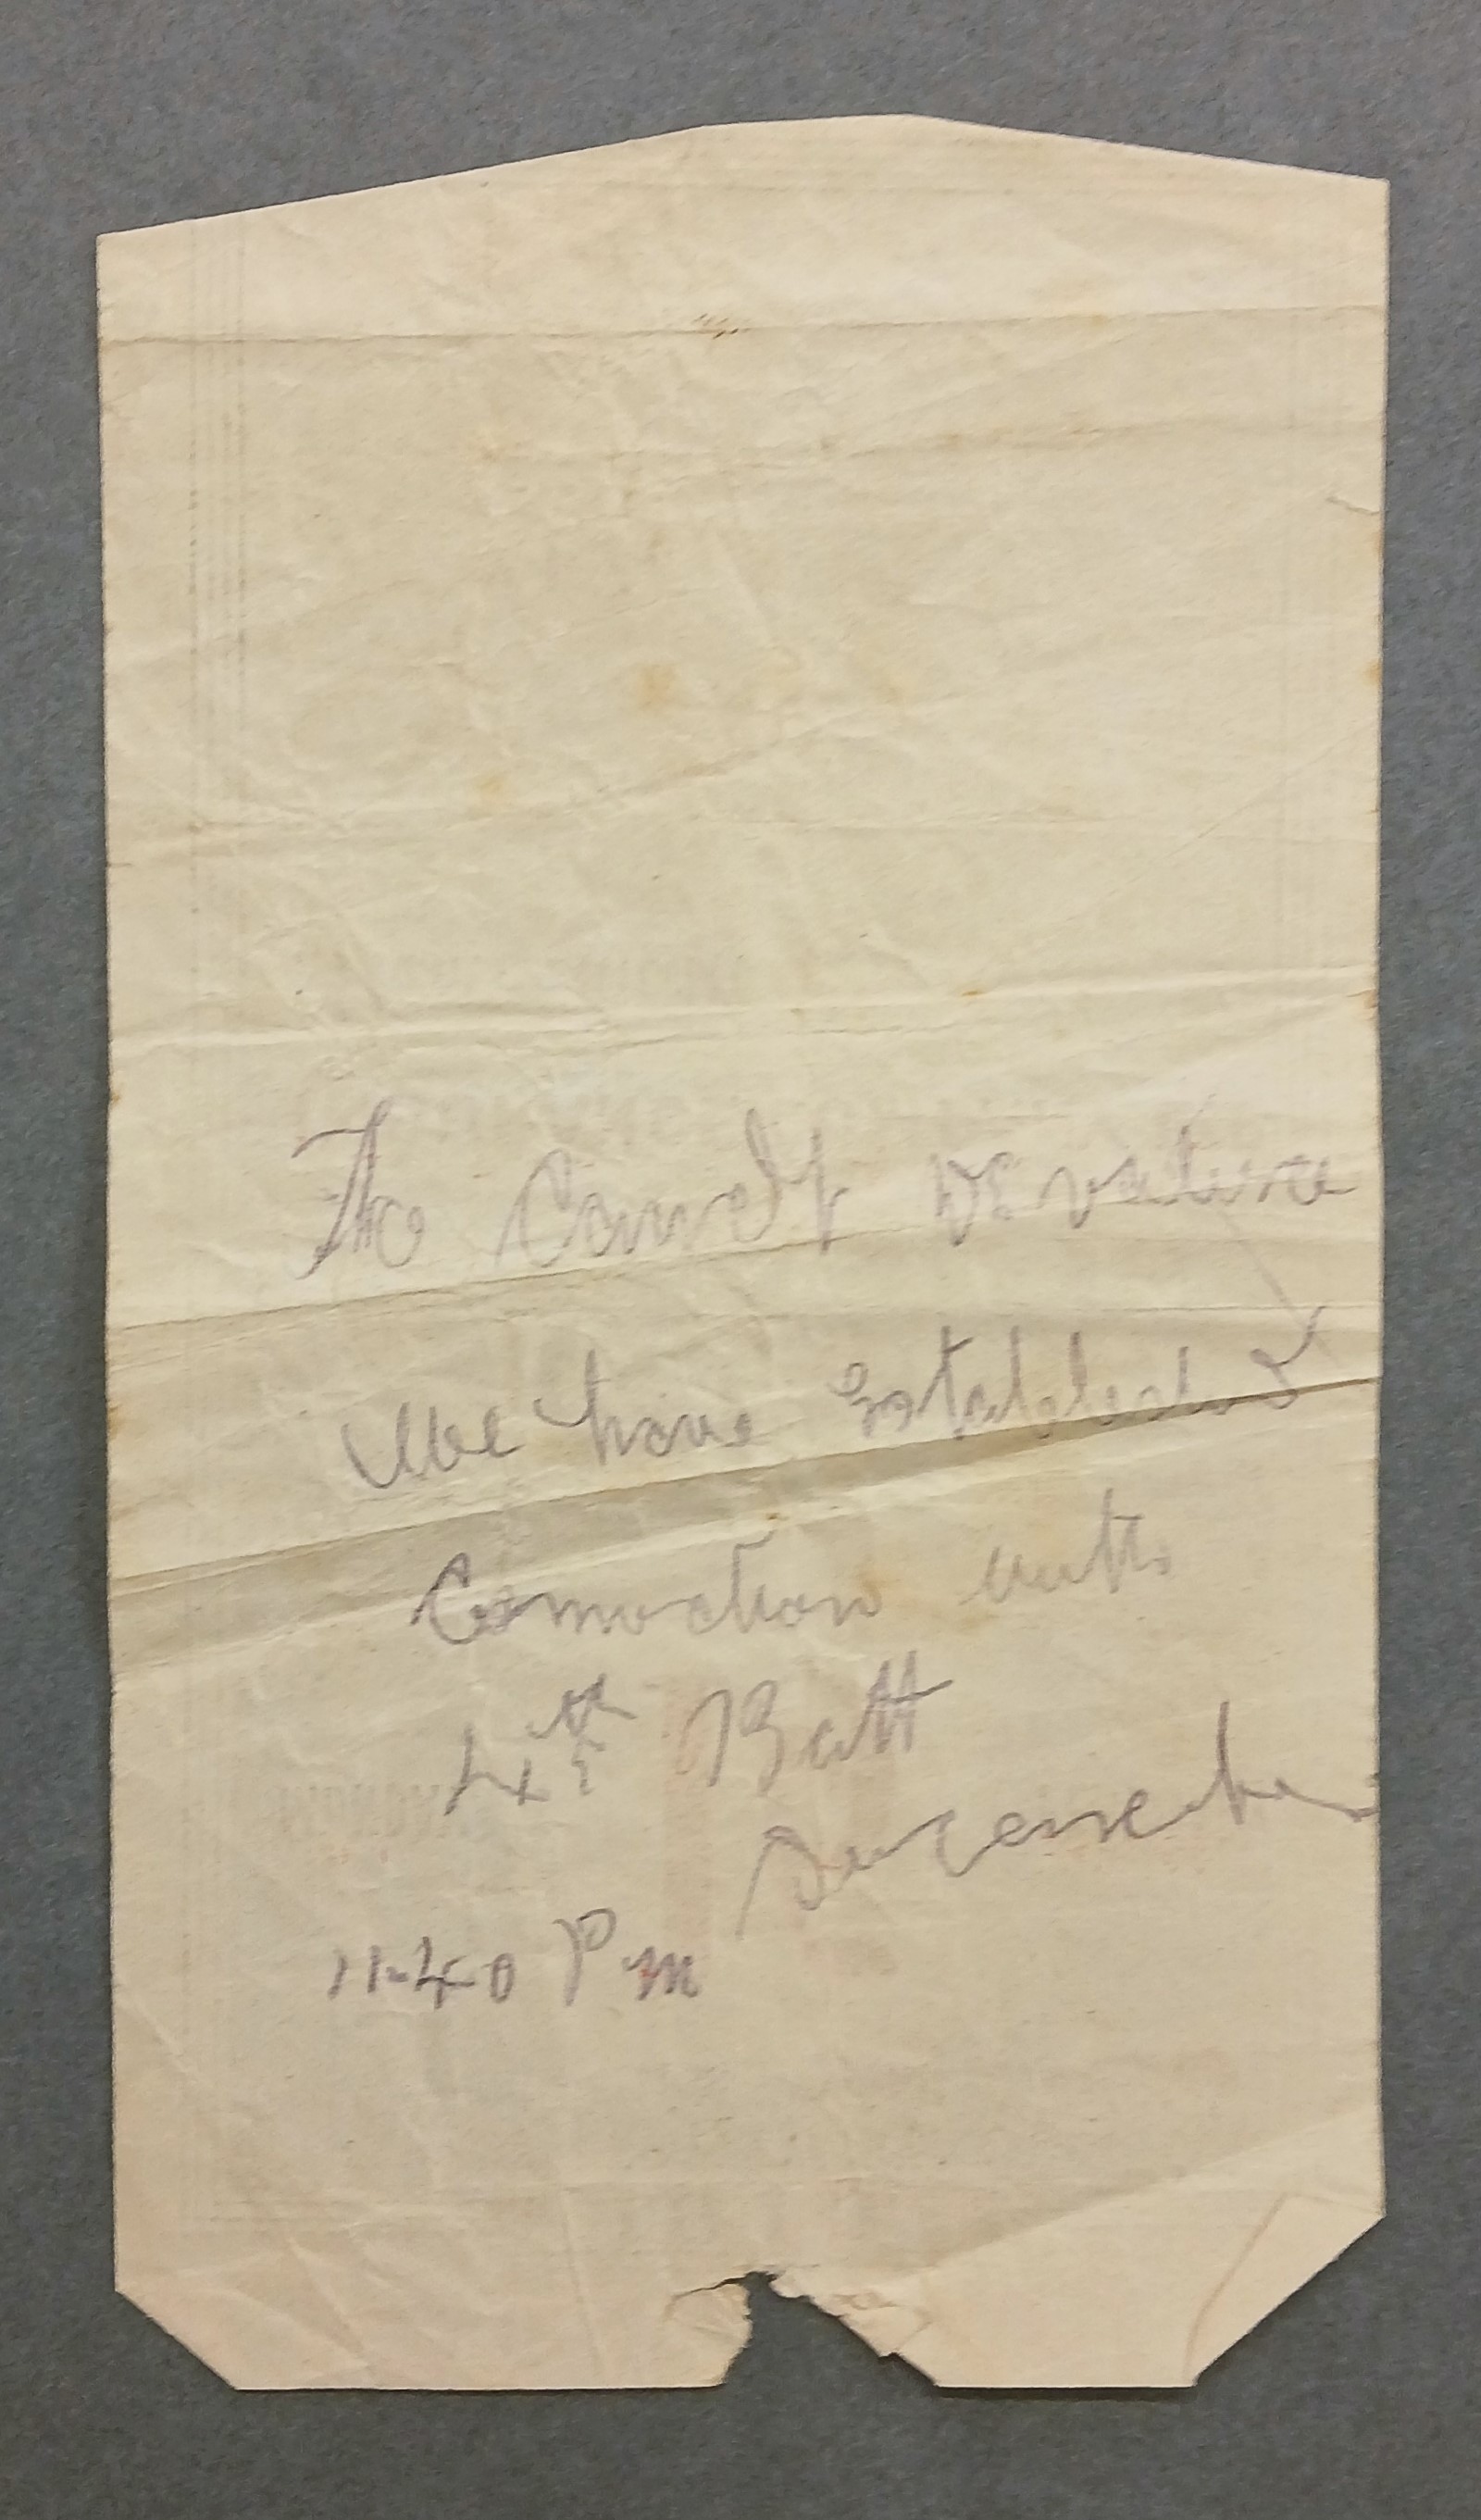 The Comdt De Valera
We have Established
Connection with
4th Batt
11-40 P m